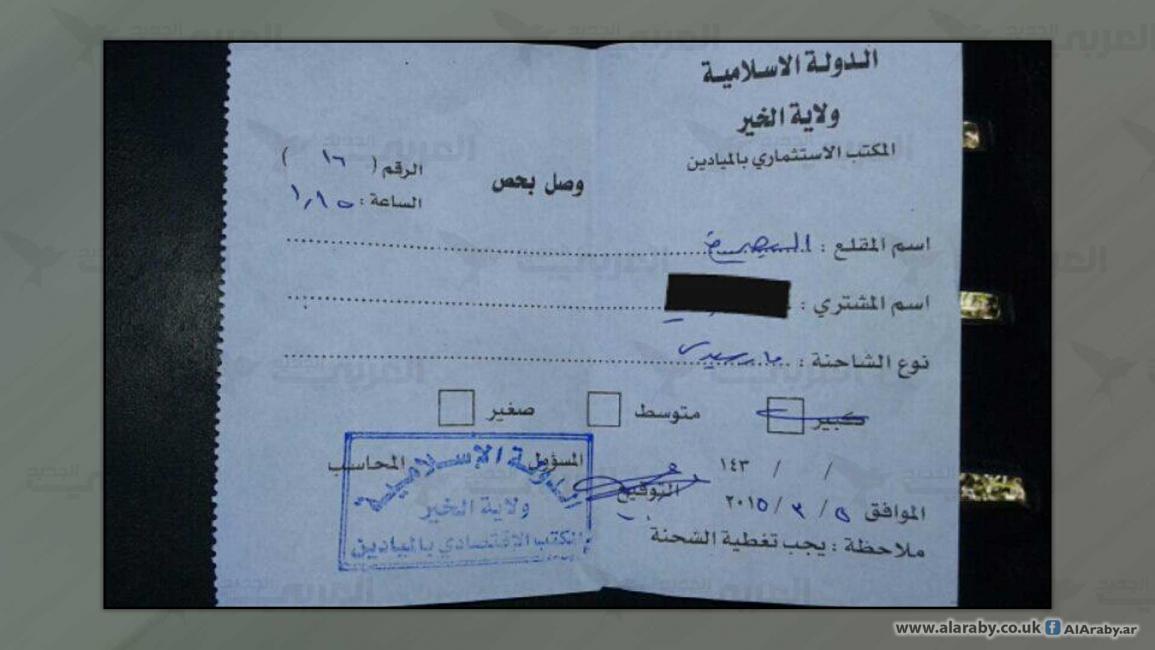 الدولة الاسلامية
ولاية الخير
المكتب الاستثماري بالميادين
وصل بحص
الرقم ( ١٦ )
الساعة :
اسم المقلع :
اسم المشتري :
نوع الشاحنة : مارسيدس
كبير متوسط صغير
/ / ١٤٣
المسؤول المحاسب
التوقيع
الموافق ٥ / ٣ / ٢٠١٥
ملاحظة : يجب تغطية الشحنة
الدولة الإسلامية
ولاية الخير
المكتب الاقتصادي بالميادين
www.alaraby.co.uk f AlAraby.ar